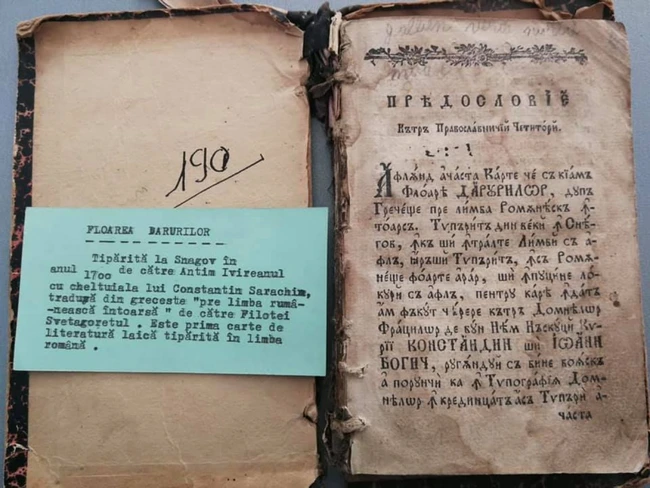 190
FLOAREA DARURILOR
Tipărită la Snagov în
anul 1700 de către Antim Ivireanul
cu cheltuiala lui Constantin Sarachim,
tradusă din greceste "pre limba rumâ-
-nească întoarsă" de către Filotei
Svetagoretul . Este prima carte de
literatură laică tipărită în limba
română .
ПРѢДОСЛОВІЕ
Кътръ Православничїй Четиторй.
Афлѫнд ачаста Карте че съ кїамъ
Флоаре ДАРУРИЛѠР, дупъ
Гречѣще пре лимба Ромѫнѣскъ ꙟ-
тоарсъ. Тупъритъ дин векй ꙟ Снѣ-
гов, ꙟкъ ши ꙟтралте Лимби съ а-
флъ, ѩръши Тупъритъ, ѩсъ Ромъ-
неще фоарте арар, ши ꙟпуцине ло-
курй съ афлъ, пентру каре ꙟдатъ
ам фъкут чѣрере кътръ Домнѣлѡр
Фрацилѡр де бун Нѣм Нъскуцй Ку-
рїй КОНСТАНДИН ши ІѠАНН
БОГИЧ, ругѫндуй съ бине воѩскъ
а порунчй ка ꙟ Тупографїѧ Дом-
нѣлѡр ꙟкрединцатъ ѩсъ Тупърй а-
часта